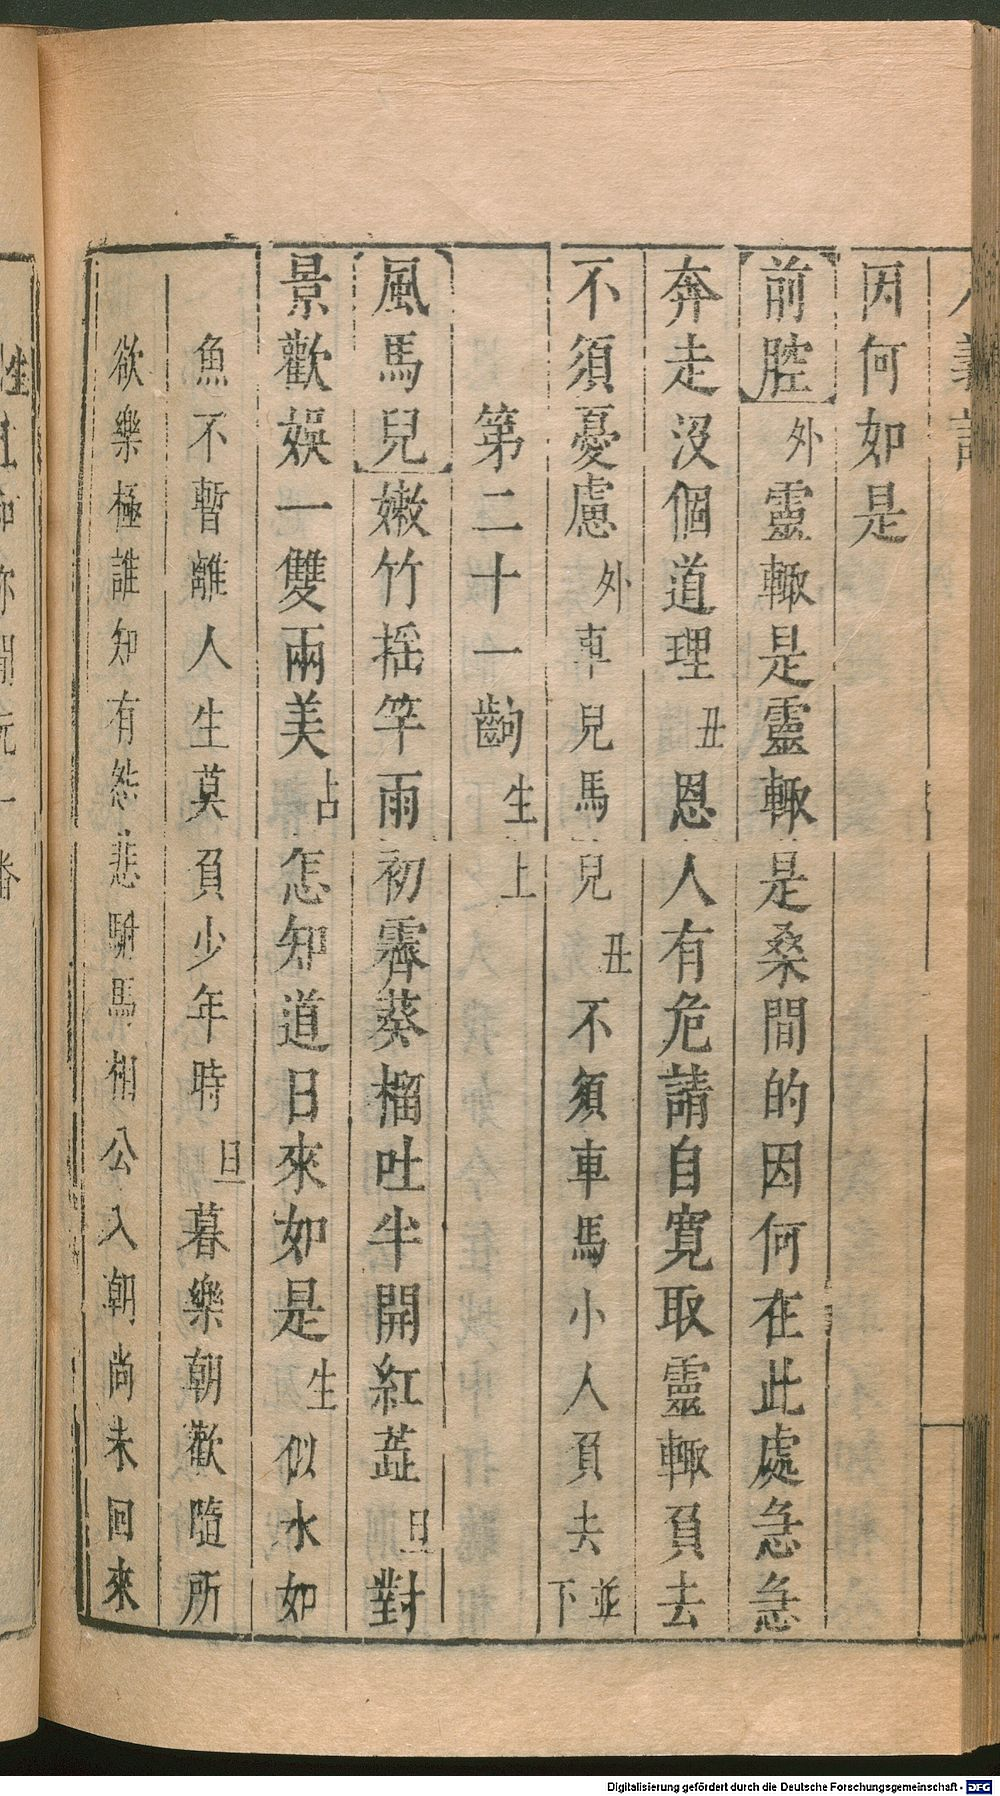 因何如是
前腔外靈輙是靈輙是桑間的因何在此處急急
奔走沒個道理丑恩人有危請自寬取靈輙負去
不須憂慮外車兒馬兒丑不須車馬小人負去並下
第二十一齣生上
風馬兒嫩竹揺竿雨初霽葵榴吐半開紅蕋旦對
景歡娛一雙兩美占怎知道日來如是生似水如
魚不暫離人生莫負少年時旦暮樂朝歡隨所
欲樂極誰知有怨悲駙馬相公入朝尚未回來
Digitalisierung gefördert durch die Deutsche Forschungsgemeinschaft - DFG